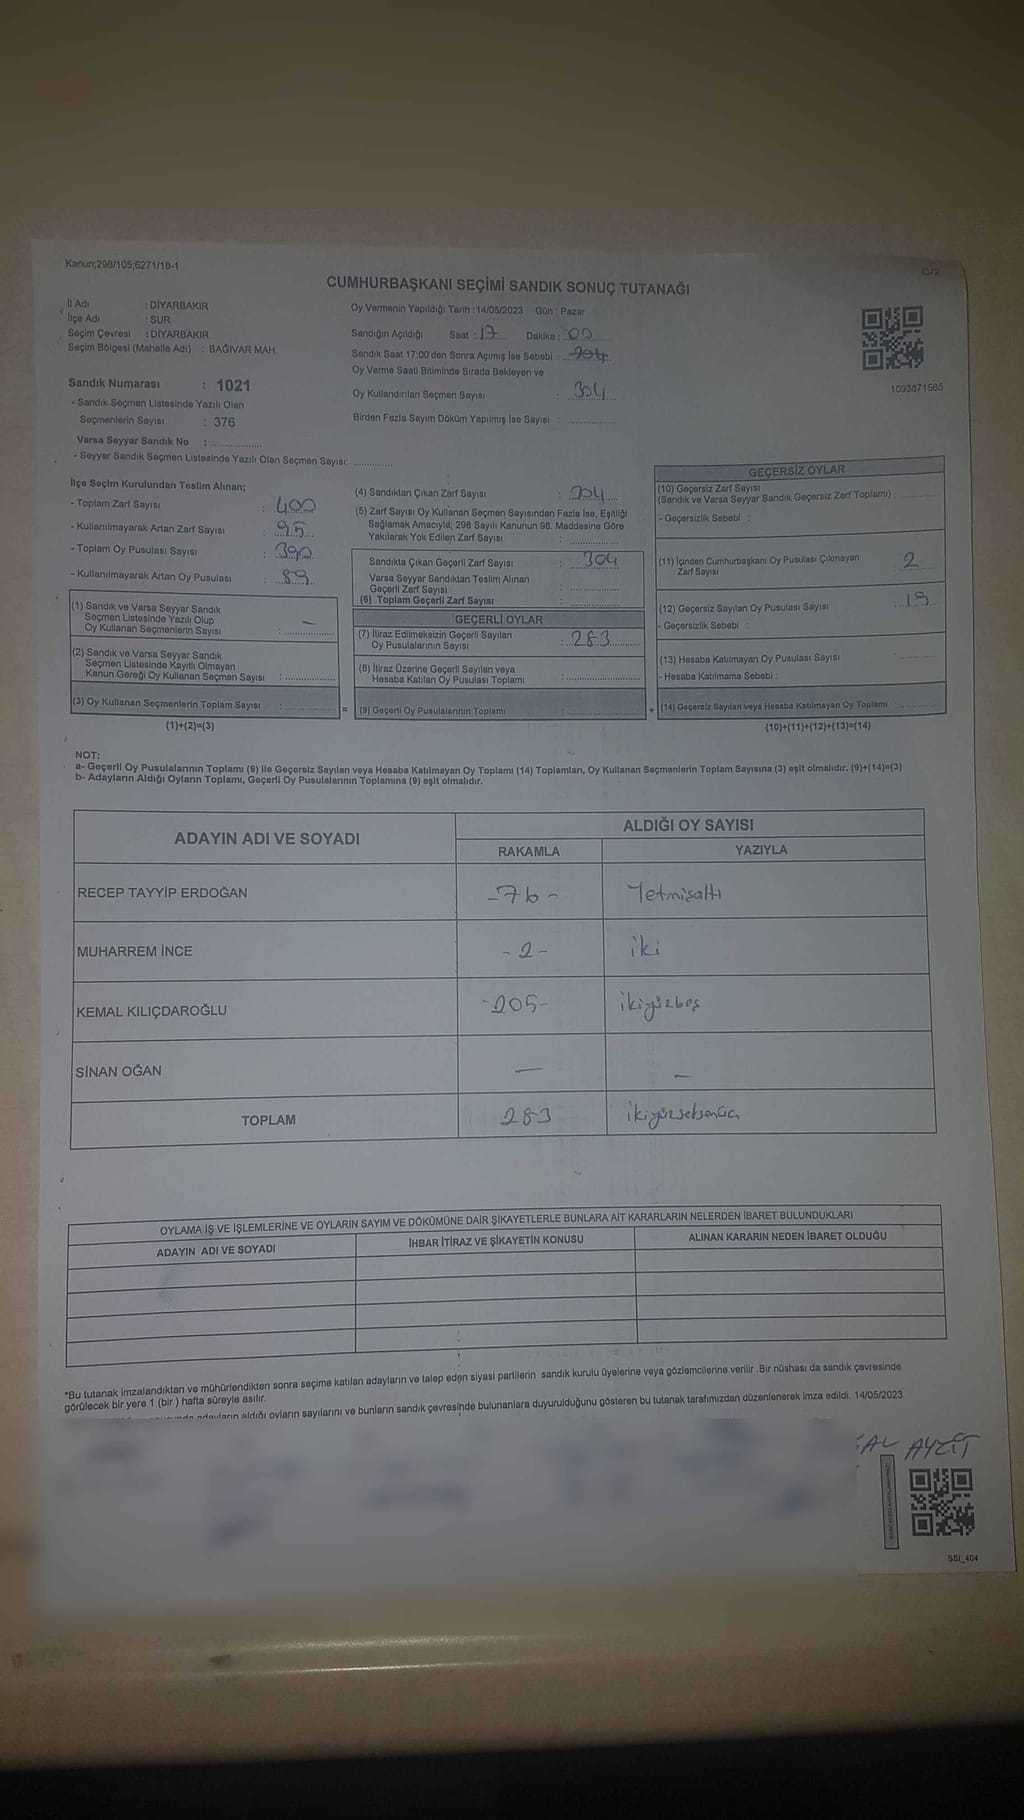 Kanun;298/105;6271/18-1
C/2
CUMHURBAŞKANI SEÇİMİ SANDIK SONUÇ TUTANAĞI
İl Adı : DİYARBAKIR
İlçe Adı : SUR
Seçim Çevresi : DİYARBAKIR
Seçim Bölgesi (Mahalle Adı) : BAĞIVAR MAH.
Oy Vermenin Yapıldığı Tarih : 14/05/2023 Gün : Pazar
Sandığın Açıldığı Saat : 17 Dakika : 00
Sandık Saat 17:00'den Sonra Açımış İse Sebebi :
Oy Verme Saati Bitiminde Sırada Bekleyen ve
Oy Kullandırılan Seçmen Sayısı : 304
Birden Fazla Sayım Döküm Yapılmış İse Sayısı :
1093871565
Sandık Numarası : 1021
- Sandık Seçmen Listesinde Yazılı Olan
Seçmenlerin Sayısı : 376
Varsa Seyyar Sandık No :
- Seyyar Sandık Seçmen Listesinde Yazılı Olan Seçmen Sayısı:
İlçe Seçim Kurulundan Teslim Alınan;
- Toplam Zarf Sayısı : 400
- Kullanılmayarak Artan Zarf Sayısı : 95
- Toplam Oy Pusulası Sayısı : 390
- Kullanılmayarak Artan Oy Pusulası : 89
(1) Sandık ve Varsa Seyyar Sandık
Seçmen Listesinde Yazılı Olup
Oy Kullanan Seçmenlerin Sayısı : —
(2) Sandık ve Varsa Seyyar Sandık
Seçmen Listesinde Kayıtlı Olmayan
Kanun Gereği Oy Kullanan Seçmen Sayısı :
(3) Oy Kullanan Seçmenlerin Toplam Sayısı :
(1)+(2)=(3)
(4) Sandıktan Çıkan Zarf Sayısı : 304
(5) Zarf Sayısı Oy Kullanan Seçmen Sayısından Fazla İse, Eşitliği
Sağlamak Amacıyla; 298 Sayılı Kanunun 98. Maddesine Göre
Yakılarak Yok Edilen Zarf Sayısı :
Sandıkta Çıkan Geçerli Zarf Sayısı : 304
Varsa Seyyar Sandıktan Teslim Alınan
Geçerli Zarf Sayısı :
(6) Toplam Geçerli Zarf Sayısı :
GEÇERLİ OYLAR
(7) İtiraz Edilmeksizin Geçerli Sayılan
Oy Pusulalarının Sayısı : 283
(8) İtiraz Üzerine Geçerli Sayılan veya
Hesaba Katılan Oy Pusulası Toplamı :
= (9) Geçerli Oy Pusulalarının Toplamı :
GEÇERSİZ OYLAR
(10) Geçersiz Zarf Sayısı
(Sandık ve Varsa Seyyar Sandık Geçersiz Zarf Toplamı) :
- Geçersizlik Sebebi :
(11) İçinden Cumhurbaşkanı Oy Pusulası Çıkmayan
Zarf Sayısı : 2
(12) Geçersiz Sayılan Oy Pusulası Sayısı : 19
- Geçersizlik Sebebi :
(13) Hesaba Katılmayan Oy Pusulası Sayısı :
- Hesaba Katılmama Sebebi :
+ (14) Geçersiz Sayılan veya Hesaba Katılmayan Oy Toplamı :
(10)+(11)+(12)+(13)=(14)
NOT:
a- Geçerli Oy Pusulalarının Toplamı (9) ile Geçersiz Sayılan veya Hesaba Katılmayan Oy Toplamı (14) Toplamları, Oy Kullanan Seçmenlerin Toplam Sayısına (3) eşit olmalıdır. (9)+(14)=(3)
b- Adayların Aldığı Oyların Toplamı, Geçerli Oy Pusulalarının Toplamına (9) eşit olmalıdır.
ADAYIN ADI VE SOYADI
ALDIĞI OY SAYISI
RAKAMLA YAZIYLA
RECEP TAYYİP ERDOĞAN -76- Yetmişaltı
MUHARREM İNCE -2- iki
KEMAL KILIÇDAROĞLU -205- ikiyüzbeş
SİNAN OĞAN — —
TOPLAM 283
OYLAMA İŞ VE İŞLEMLERİNE VE OYLARIN SAYIM VE DÖKÜMÜNE DAİR ŞİKAYETLERLE BUNLARA AİT KARARLARIN NELERDEN İBARET BULUNDUKLARI
ADAYIN ADI VE SOYADI İHBAR İTİRAZ VE ŞİKAYETİN KONUSU ALINAN KARARIN NEDEN İBARET OLDUĞU
*Bu tutanak imzalandıktan ve mühürlendikten sonra seçime katılan adayların ve talep eden siyasi partilerin sandık kurulu üyelerine veya gözlemcilerine verilir .Bir nüshası da sandık çevresinde
görülecek bir yere 1 (bir ) hafta süreyle asılır.
adayların aldığı oyların sayılarını ve bunların sandık çevresinde bulunanlara duyurulduğunu gösteren bu tutanak tarafımızdan düzenlenerek imza edildi. 14/05/2023
AYZİT
SSI_404